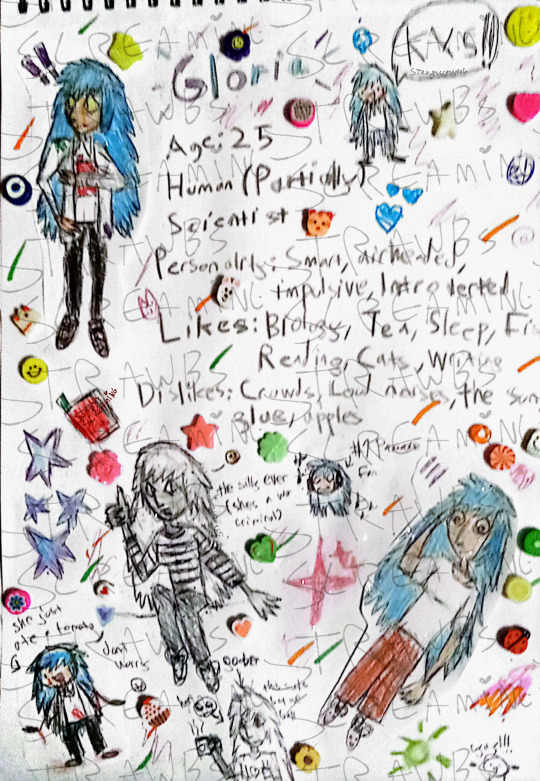 Gloria
KAYS!!!
Age: 25
Human (Partially)
Scientist
Personality: Smart, airheaded,
impulsive, Introverted
Likes: Biology, Tea, Sleep,
Reading, Cats, Writing
Dislikes: Crowds, Loud noises, the sun
Blue, apples
the silly ever
(she's a war
criminal)
she just
ate a tomato
don't
worry
goober
STRAWBS
SCREAMING